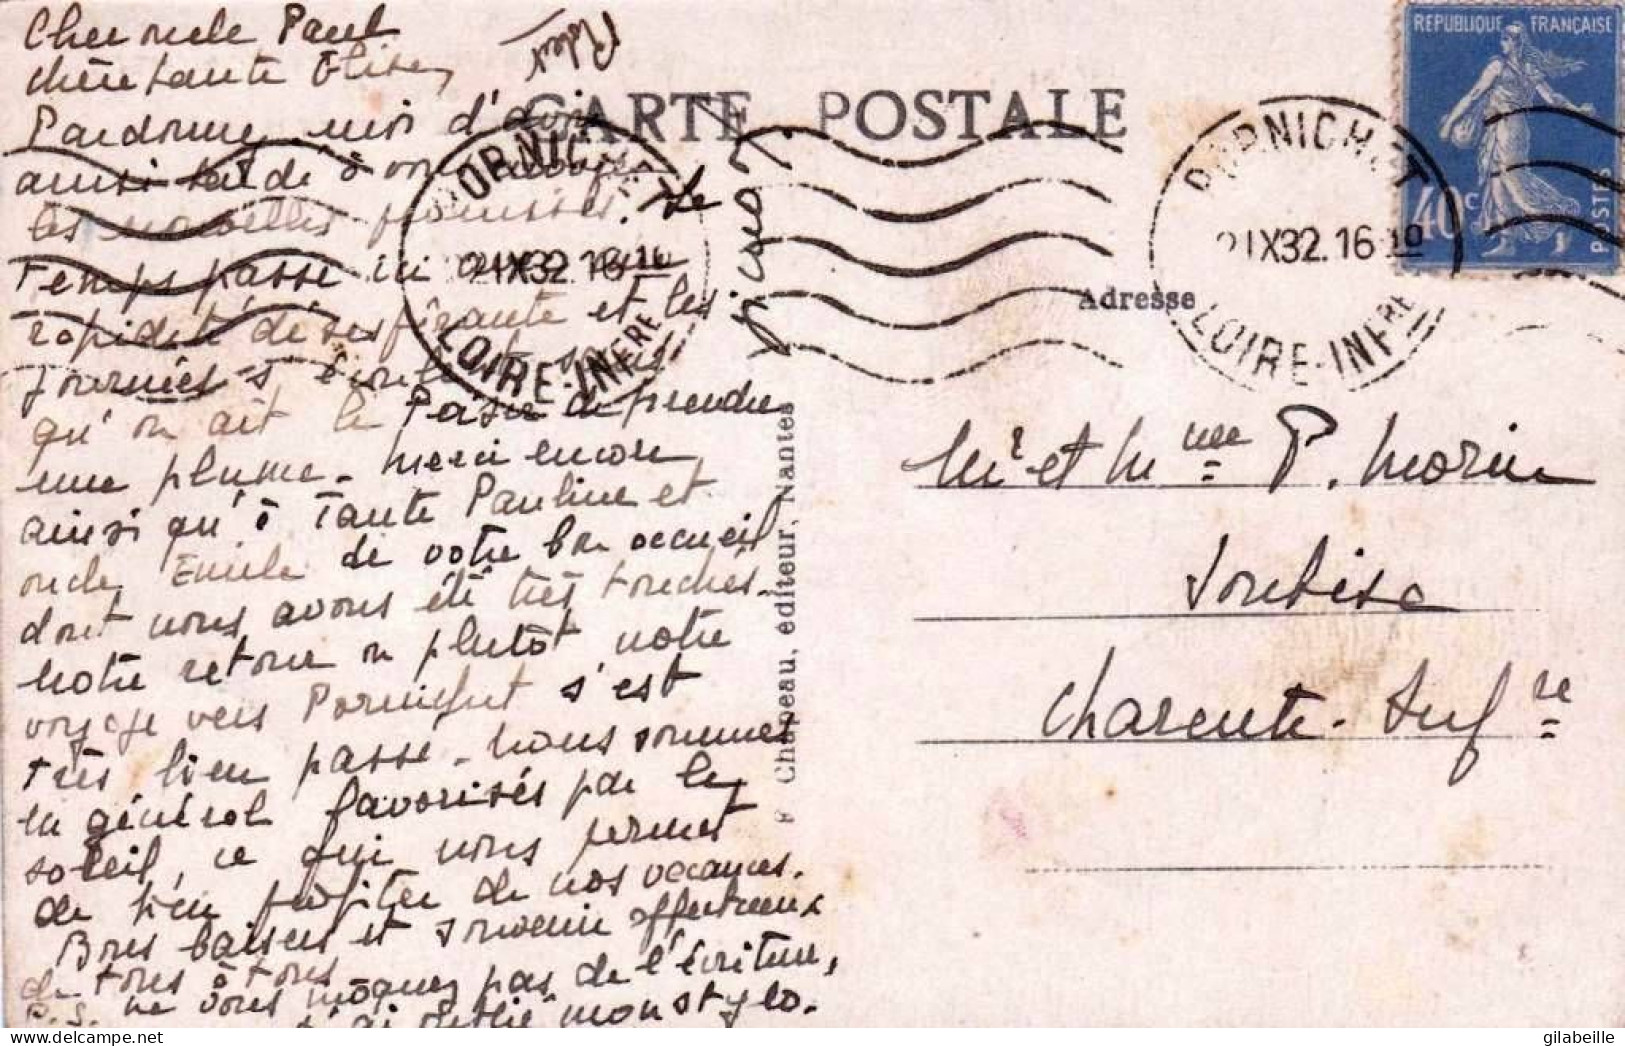 Cher oncle Paul
chère tante Élise,
Pardonnez moi d'avoir
ainsi tardé à vous
les nouvelles promises. Le
temps passe ici avec une
rapidité désespérante et les
journées s'écoulent sans
qu'on ait le loisir de prendre
une plume. Merci encore
ainsi qu'à Tante Pauline et
oncle Émile de votre bon accueil
dont nous avons été très touchés.
Notre retour ou plutôt notre
voyage vers Pornichet s'est
très bien passé. Nous sommes
en général favorisés par le
soleil, ce qui nous permet
de bien profiter de nos vacances.
Bons baisers et souvenir affectueux
de tous à tous
P.S. Ne vous moquez pas de l'écriture,
j'ai oublié mon stylo.
CARTE POSTALE
REPUBLIQUE FRANÇAISE
40c
POSTES
PORNICHET
21 IX 32. 16 10
LOIRE-INFRE
PORNICHET
21 IX 32. 16 10
LOIRE-INFRE
Adresse
Chapeau, éditeur, Nantes
Mr et Mme P. Morin
Soubise
Charente-Infre
gilabeille